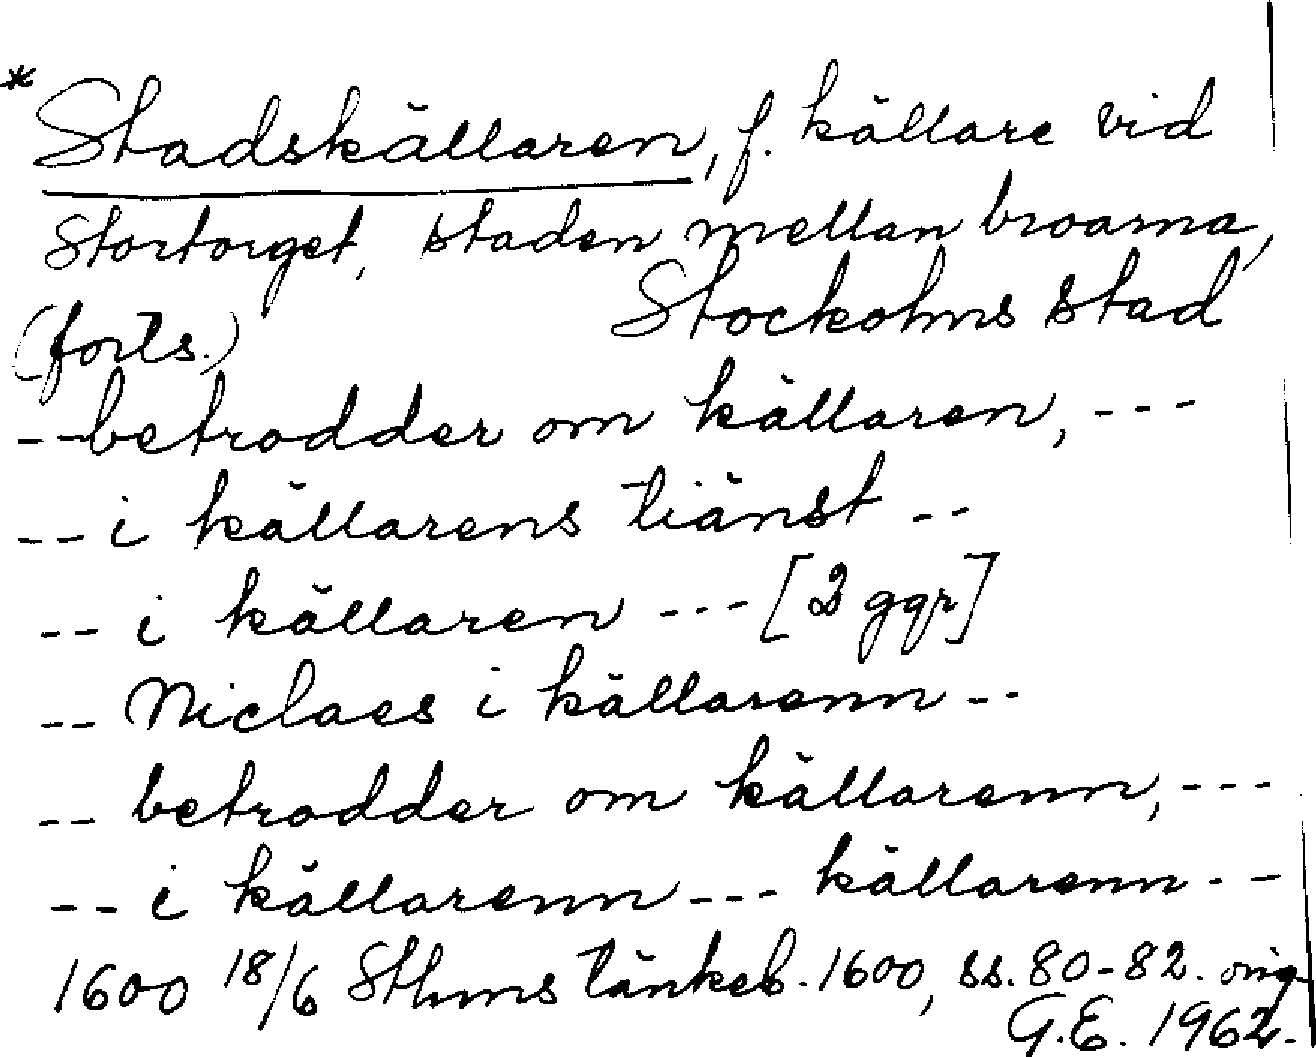 *Stadskällaren, f. källare vid
Stortorget, staden mellan broarna,
Stockolms stad
(forts.)
--betrodder om källaren, ---
-- i källarens tiänst --
-- i källaren --- [2 ggr]
-- Niclaes i källarenn --
-- betrodder om källarenn, ---
-- i källarenn --- källarenn --
1600 18/6 Sthms tänkeb. 1600, ss. 80-82. orig.
G.E. 1962.